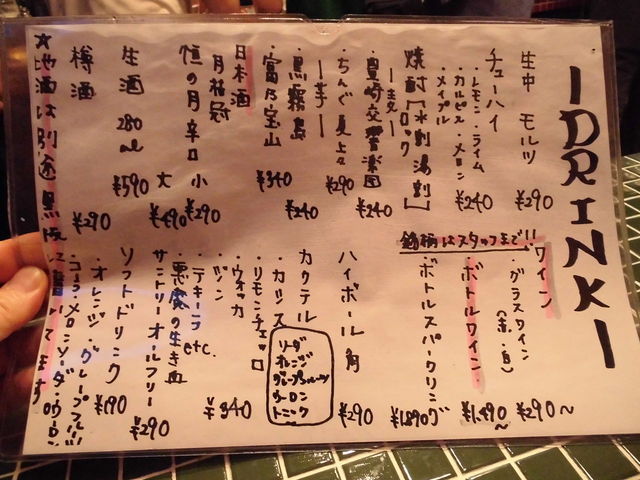 DRINK
生中 モルツ ¥290
チューハイ
・レモン・ライム
・カルピス・メロン
・メイプル ¥240
焼酎[水割 湯割]
[ロック]
ー麦ー
・豊崎交響楽団 ¥240
・ちんぐ 夏上々 ¥290
ー芋ー
・黒霧島 ¥240
・富乃宝山 ¥340
日本酒
月桂冠 小 ¥290
大 ¥490
恒の月 辛口
生酒 280ml ¥590
樽酒 ¥290
★地酒は別途 黒板に書いてます
銘柄はスタッフまで!!
ワイン
・グラスワイン
(赤・白) ¥290〜
・ボトルワイン ¥1,490〜
・ボトルスパークリング ¥1,890
ハイボール 角 ¥290
カクテル
・カシス
・リモンチェッロ
・ウォッカ
・ジン
・テキーラ etc. ¥340
ソーダ
オレンジ
グレープフルーツ
ウーロン
トニック
悪魔の生き血
サントリーオールフリー ¥290
ソフトドリンク ¥190
・オレンジ・グレープフルーツ
・コーラ・メロンソーダ・ウーロン